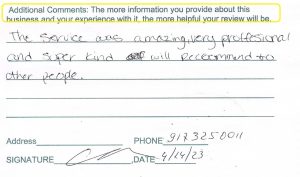 Additional Comments: The more information you provide about this
business and your experience with it, the more helpful your review will be.
The service was amazing, very proffesional
and super kind will reccommend to
other people.
Address PHONE 9173250011
SIGNATURE DATE 4/14/23